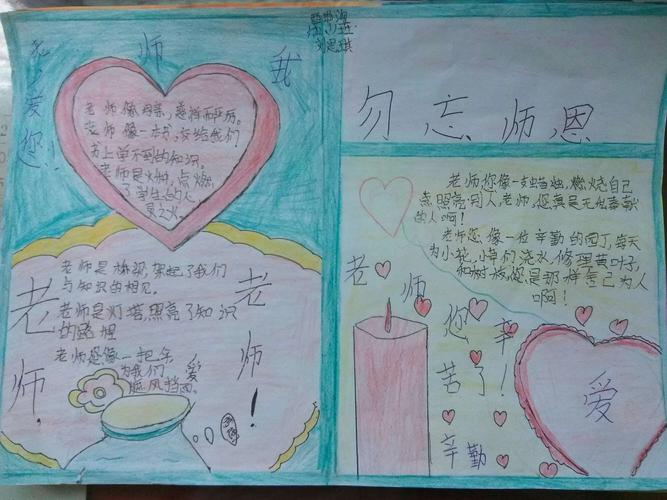 老师我
爱您!!
老师像母亲,慈祥而严厉。
老师像一本书,交给我们
书上学不到的知识。
老师是火种,点燃
了学生的心
灵之火。
老师是桥梁,架起了我们
与知识的相见。
老师是灯塔,照亮了知识
的路程
老师您像一把伞,
为我们
遮风挡雨。
老师.
爱
老师!
刘思琪
勿忘师恩
老师您像一支蜡烛,燃烧自己
点照亮别人,老师,您真是无私奉献
的人啊!
老师您像一位辛勤的园丁,每天
为小花,小草们浇水,修理黄叶子,
和树枝您是那样舍己为人
啊!
老师
您辛
苦了!
辛勤
爱